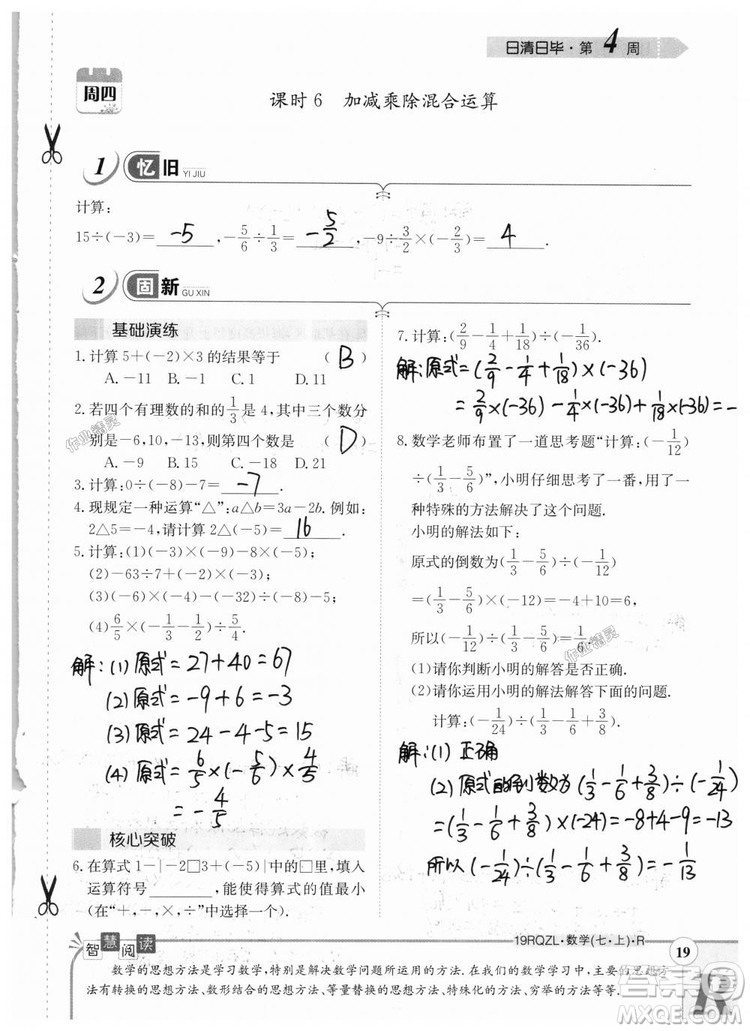 日清日毕·第4周
周四
课时6 加减乘除混合运算
1 忆旧 YI JIU
计算:
15÷(-3)= -5 ,-5/6÷1/3= -5/2 ,-9÷3/2×(-2/3)= 4 .
2 固新 GU XIN
基础演练
1.计算5+(-2)×3的结果等于 ( B )
A.-11 B.-1 C.1 D.11
2.若四个有理数的和的1/3是4,其中三个数分
别是-6,10,-13,则第四个数是 ( D )
A.-9 B.-18 C.15 D.21
3.计算:0÷(-8)-7= -7 .
4.现规定一种运算“△”:a△b=3a-2b.例如:
2△5=-4,请计算2△(-5)= 16 .
5.计算:(1)(-3)×(-9)-8×(-5);
(2)-63÷7+(-2)×(-3);
(3)(-6)×(-4)-(-32)÷(-8)-5;
(4)6/5×(-1/3-1/2)÷5/4.
解:(1) 原式=27+40=67
(2) 原式=-9+6=-3
(3) 原式=24-4-5=15
(4) 原式=6/5×(-5/6)×4/5
=-4/5
核心突破
6.在算式1-|-2□3+(-5)|中的□里,填入
运算符号 ,能使得算式的值最小
(在“+,-,×,÷”中选择一个).
7.计算:(2/9-1/4+1/18)÷(-1/36).
解:原式=(2/9-1/4+1/18)×(-36)
=2/9×(-36)-1/4×(-36)+1/18×(-36)
8.数学老师布置了一道思考题“计算:(-1/12)
÷(1/3-5/6)”,小明仔细思考了一番,用了一
种特殊的方法解决了这个问题.
小明的解法如下:
原式的倒数为(1/3-5/6)÷(-1/12)
=(1/3-5/6)×(-12)=-4+10=6,
所以(-1/12)÷(1/3-5/6)=1/6.
(1)请你判断小明的解答是否正确.
(2)请你运用小明的解法解答下面的问题.
计算:(-1/24)÷(1/3-1/6+3/8).
解:(1) 正确
(2) 原式的倒数为(1/3-1/6+3/8)÷(-1/24)
=(1/3-1/6+3/8)×(-24)=-8+4-9=-13
所以(-1/24)÷(1/3-1/6+3/8)=-1/13
智慧阅读
19RQZL·数学(七·上)·R
19
数学的思想方法是学习数学,特别是解决数学问题所运用的方法.在我们的数学学习中,主要的思想方
法有转换的思想方法、数形结合的思想方法、等量替换的思想方法、特殊化的方法、穷举的方法等等.
作业精灵
作业精灵